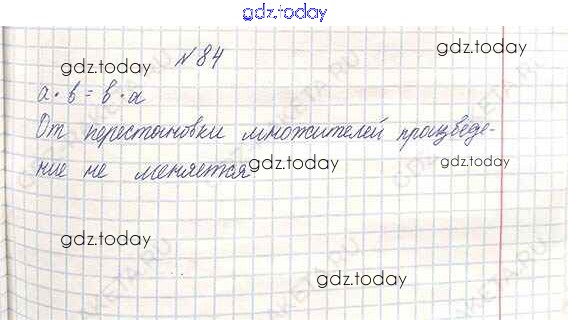 gdz.today
№ 84
gdz.today
gdz.today
a · b = b · a
От перестановки множителей произведе-
ние не меняется
gdz.today
gdz.today
gdz.today
gdz.today